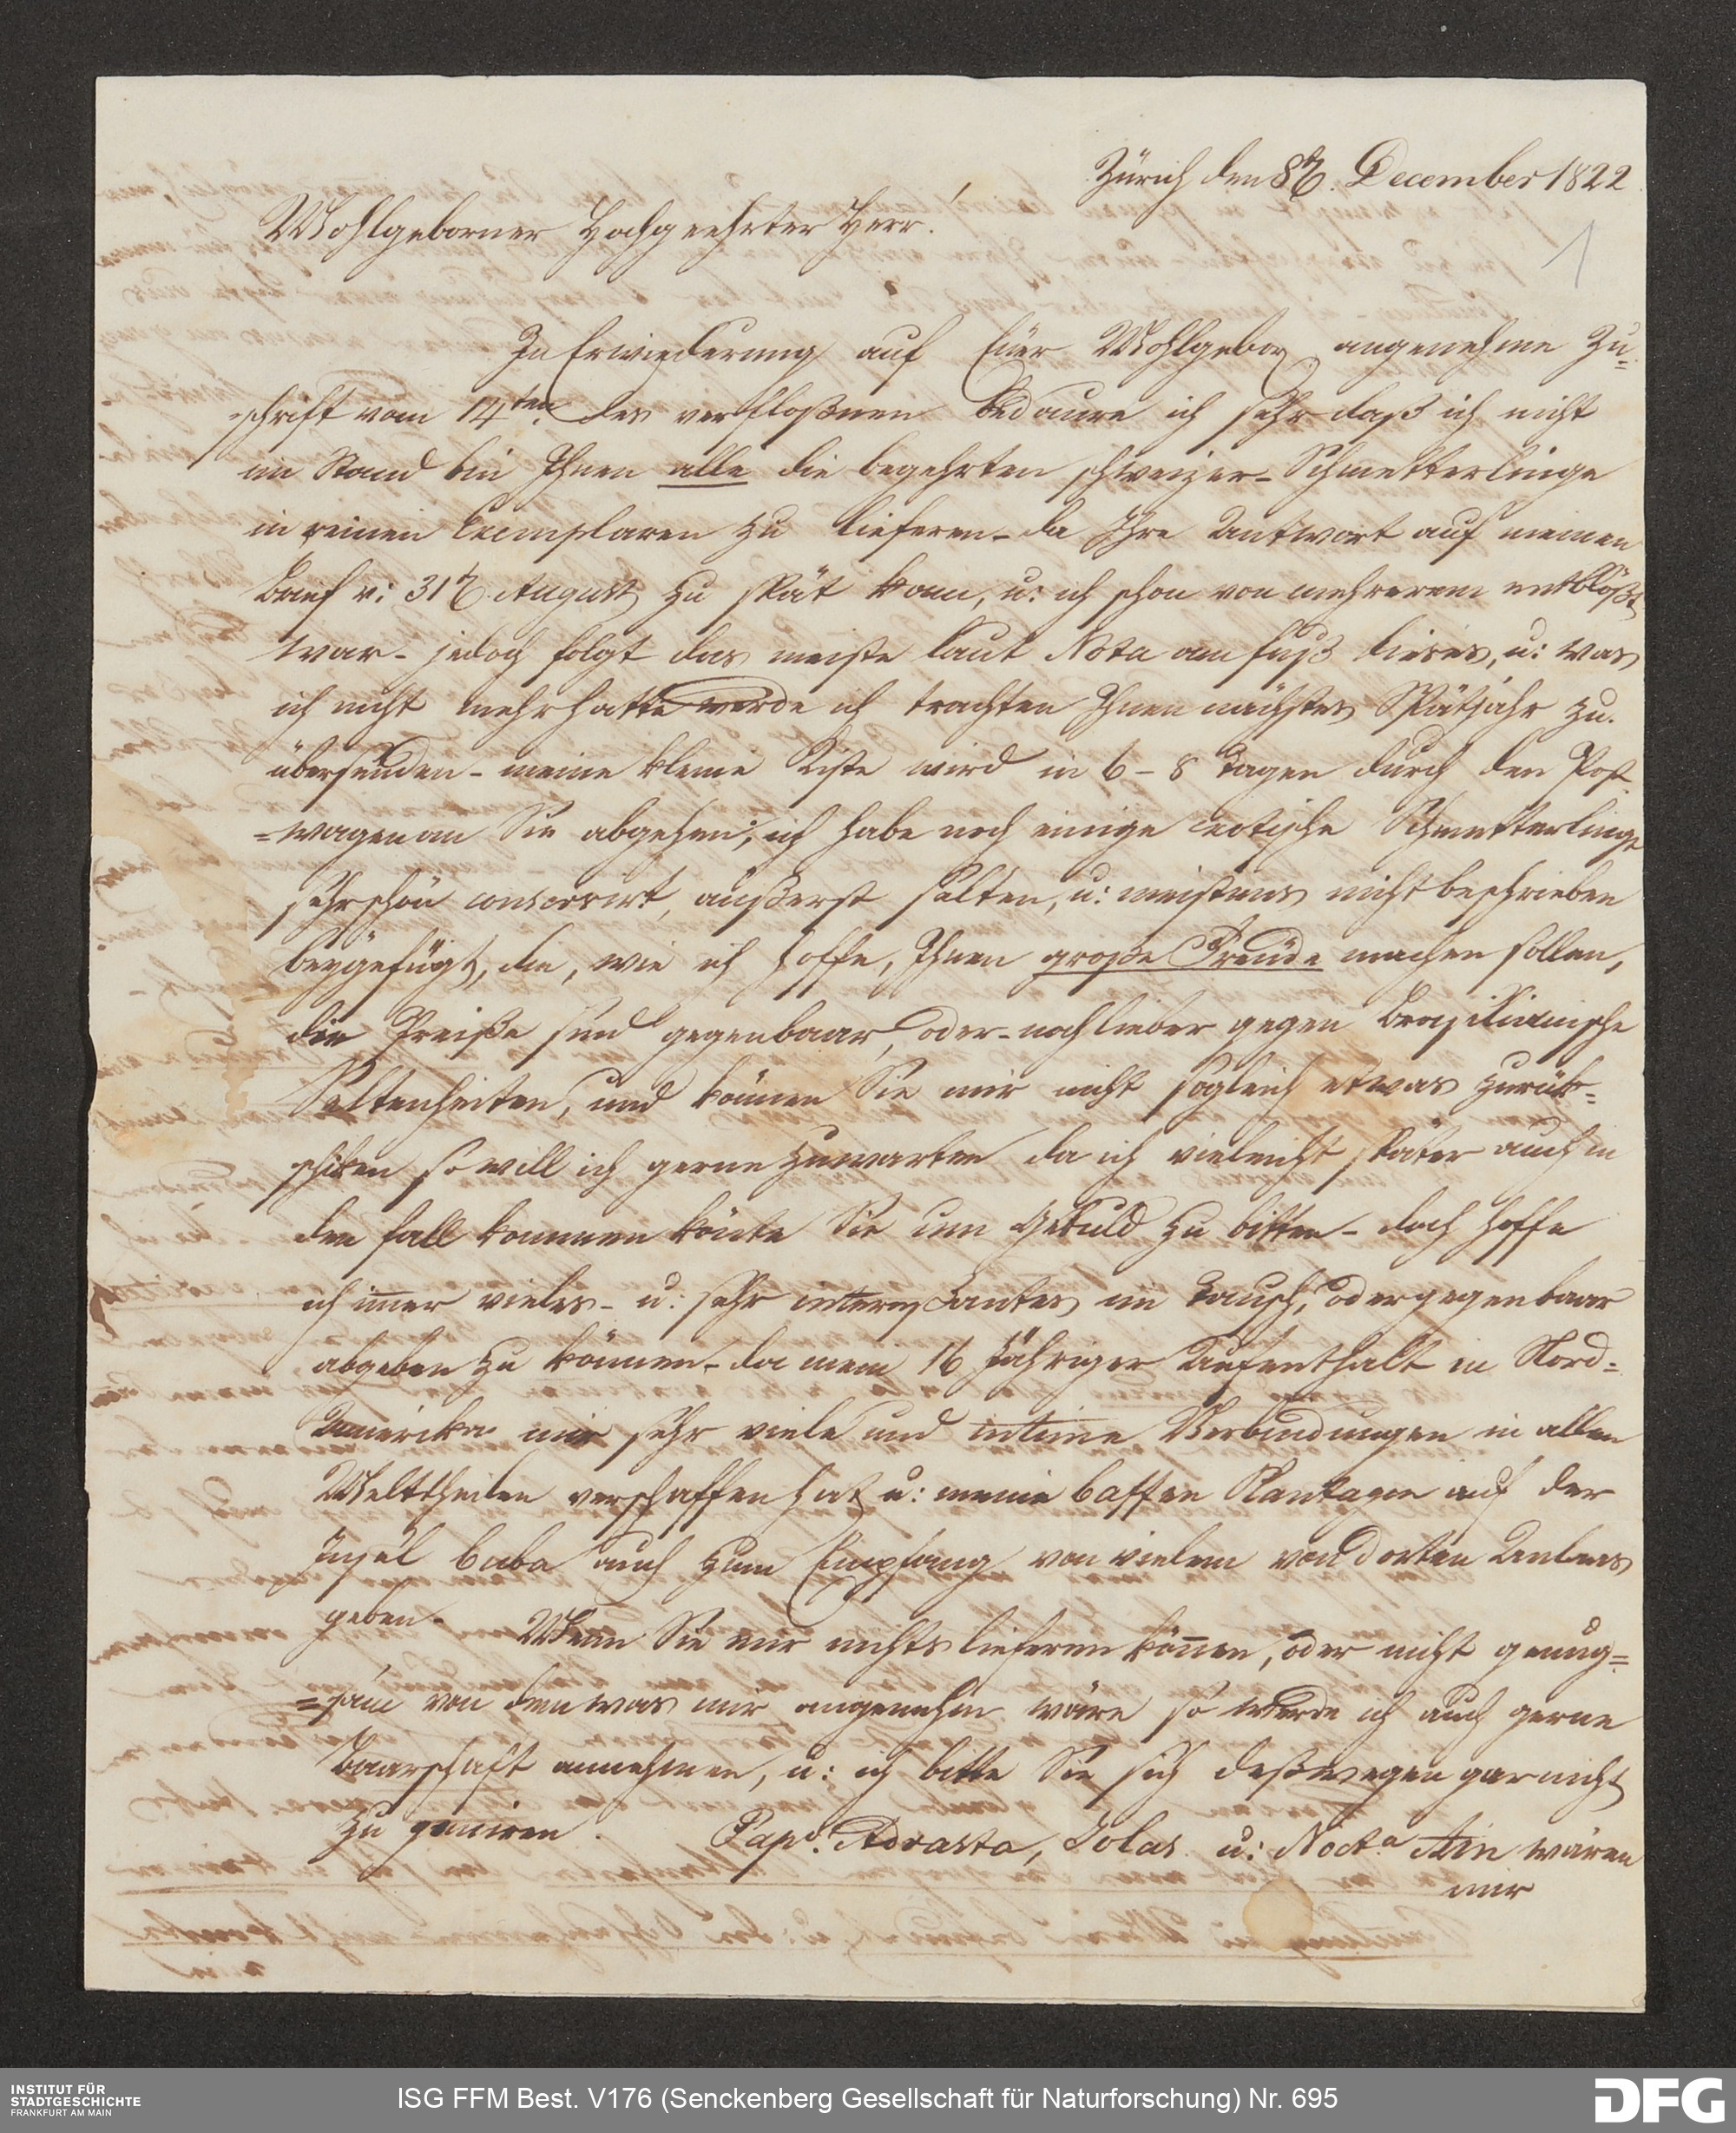 Zürich den 8t. December 1822
Wohlgeborner Hochgeehrter Herr!
1
In Erwiederung auf Euer Wohlgebor angenehme Zu=
schrift vom 14ten des verfloßnen bedaure ich sehr daß ich nicht
im Stand bin Ihnen alle die begehrten schweizer-Schmetterlinge
in reinen Exemplaren zu lieferen - da Ihre Antwort auf meinen
Brief v: 31t August zu spät kam, u: ich schon von mehrerem entblößt
war - jedoch folgt das meiste laut Nota am fuß dieses, u: was
ich nicht mehr hatte werde ich trachten Ihnen nächstes Spätjahr zu
übersenden - meine kleine Kiste wird in 6-8 Tagen durch den Post
=wagen an Sie abgehen; ich habe noch einige exotische Schmetterlinge
sehr schön conservirt, äußerst selten, u: meistens nicht beschrieben
beygefügt, die, wie ich hoffe, Ihnen große Freüde machen sollen,
die Preiße sind gegen baar, oder - noch lieber gegen Brazilianische
Seltenheiten, und können Sie mir nicht sogleich etwas zurük=
schiken so will ich gerne zuwarten da ich vieleicht später auch in
den fall kommen könte Sie um Geduld zu bitten - doch hoffe
ich imer vieles - u: sehr interessantes im Tausch, oder gegen baar
abgeben zu können - da mein 16 Jähriger Aufenthalt in Nord=
Amerika mir sehr viele und intime Verbindungen in allen
Welttheilen verschaffen hat u: meine Caffee Plantage auf der
Insel Cuba auch zum Empfang von vielem von dorten Anlaas
geben.
Wenn Sie mir nichts lieferen könen, oder nicht genug=
=sam von dem was mir angenehm wäre so werde ich auch gerne
Baarschaft annehmen, u: ich bitte Sie sich deßwegen gar nicht
zu geniren. Papo. Adrasta, Iolas u: Nocta Ain wären
mir
INSTITUT FÜR
STADTGESCHICHTE
FRANKFURT AM MAIN
ISG FFM Best. V176 (Senckenberg Gesellschaft für Naturforschung) Nr. 695
DFG